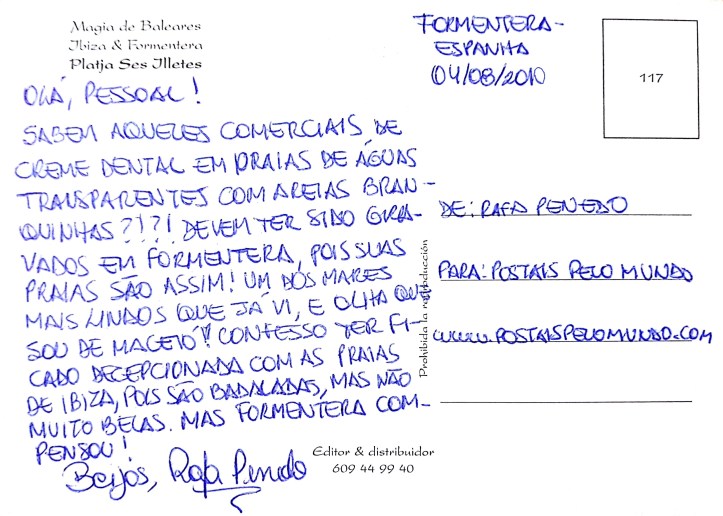 Magia de Baleares
Ibiza & Formentera
Platja Ses Illetes
FORMENTERA-
ESPANHA
04/08/2010
117
OLÁ, PESSOAL!
SABEM AQUELES COMERCIAIS DE
CREME DENTAL EM PRAIAS DE ÁGUAS
TRANSPARENTES COM AREIAS BRAN-
QUINHAS?!?! DEVEM TER SIDO GRA-
VADOS EM FORMENTERA, POIS SUAS
PRAIAS SÃO ASSIM! UM DOS MARES
MAIS LINDOS QUE JÁ VI, E OLHA QUE
SOU DE MACEIÓ! CONFESSO TER FI-
CADO DECEPCIONADA COM AS PRAIAS
DE IBIZA, POIS SÃO BADALADAS, MAS NÃO
MUITO BELAS. MAS FORMENTERA COM-
PENSOU!
Beijos, Rafa Penedo
Prohibida la reproducción
DE: RAFA PENEDO
PARA: POSTAIS PELO MUNDO
www.POSTAISPELOMUNDO.COM
Editor & distribuidor
609 44 99 40